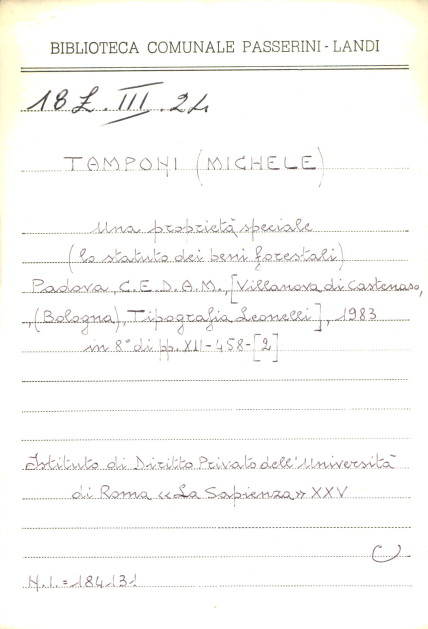 BIBLIOTECA COMUNALE PASSERINI-LANDI
18 L. III. 24
TAMPONI (MICHELE)
Una proprietà speciale
(lo statuto dei beni forestali)
Padova, C.E.D.A.M., [Villanova di Castenaso,
(Bologna), Tipografia Leonelli], 1983
in 8° di pp. XII-458-[2]
Istituto di Diritto Privato dell'Università
di Roma «La Sapienza» XXV
N.I. = 184131